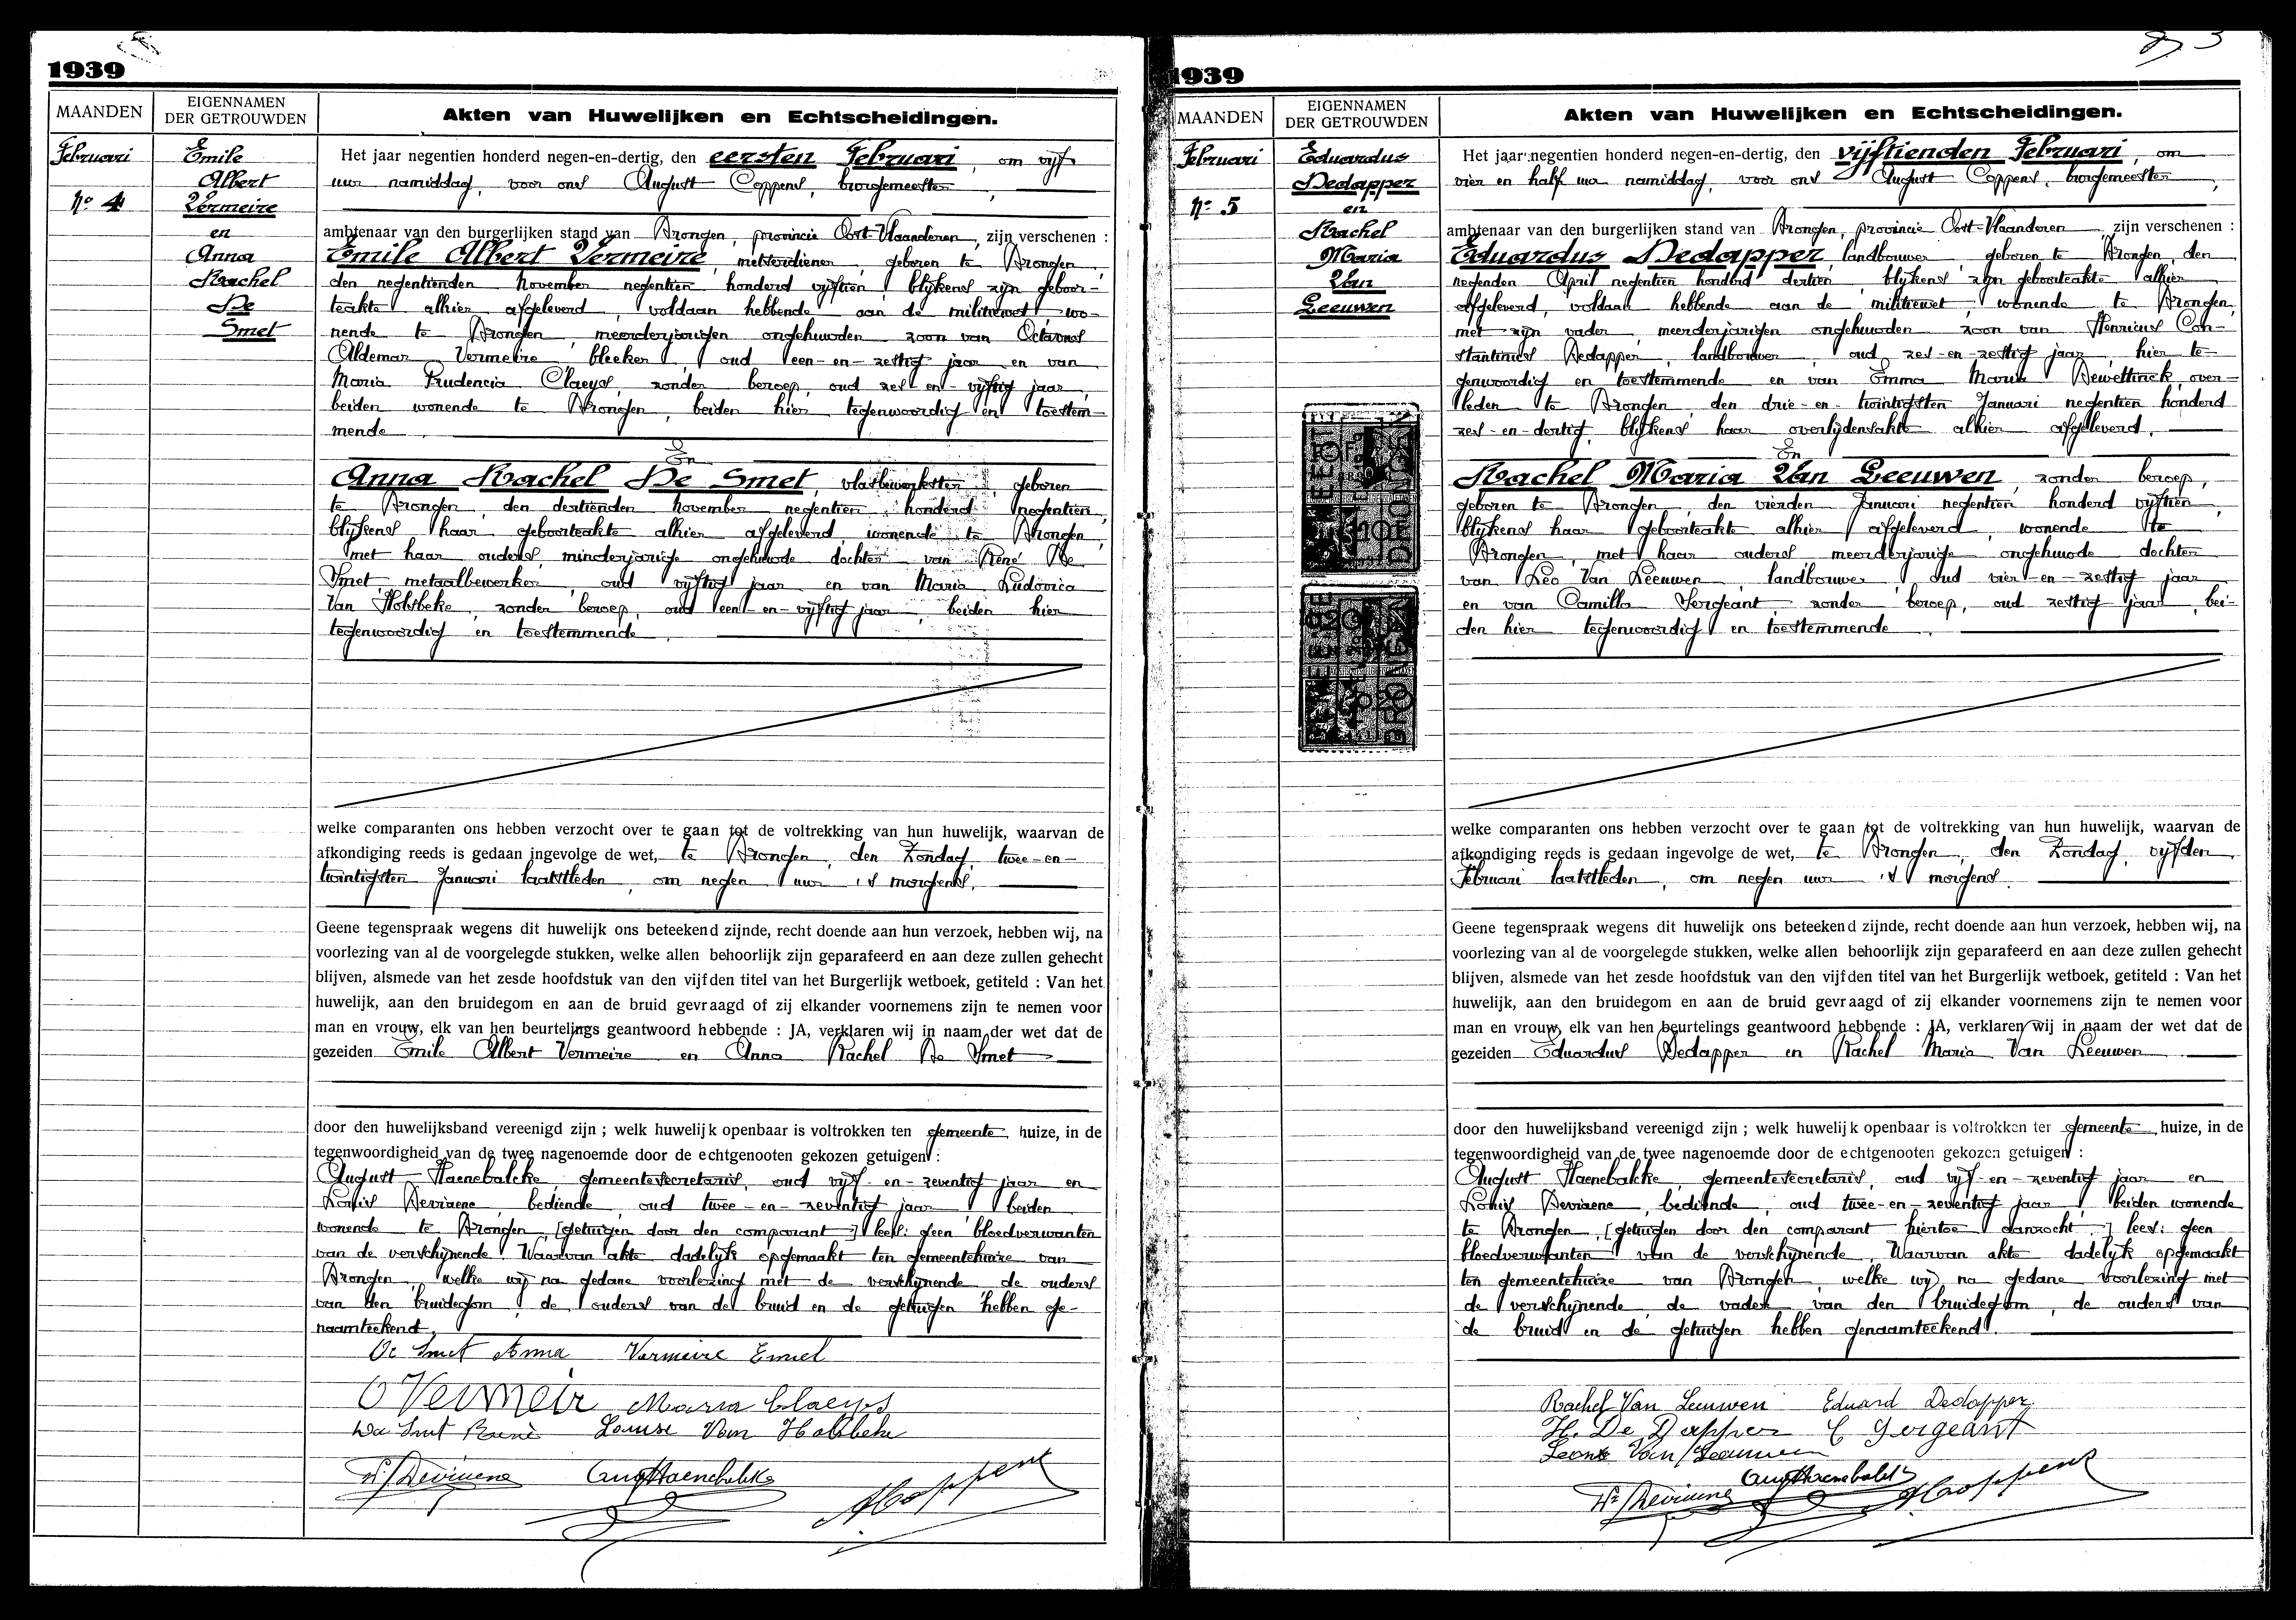 1939
MAANDEN
EIGENNAMEN
DER GETROUWDEN
Akten van Huwelijken en Echtscheidingen.
Februari
Nº 4
Emile
Albert
Vermeire
en
Anna
Rachel
De
Smet
Het jaar negentien honderd negen-en-dertig, den eersten Februari, om vijf
uur namiddag, voor ons August Coppens, burgemeester,
ambtenaar van den burgerlijken stand van Drongen, provincie Oost-Vlaanderen, zijn verschenen :
Emile Albert Vermeire, melkerdiener, geboren te Drongen,
den negentienden November negentien honderd vijftien, blijkens zijn geboor-
teakte alhier afgeleverd, voldaan hebbende aan de militiewet, wo-
nende te Drongen, meerderjarigen ongehuwden zoon van Octavus
Aldemar Vermeire bleeker, oud een-en-zestig jaar en van
Maria Prudencia Claeys, zonder beroep, oud zes-en-vijftig jaar,
beiden wonende te Drongen, beiden hier tegenwoordig en toestem-
mende.
En
Anna Rachel De Smet, vlasbewerkster, geboren
te Drongen, den dertienden November negentien honderd negentien,
blijkens haar geboorteakte alhier afgeleverd, wonende te Drongen,
met haar ouders, minderjarige ongehuwde dochter van René De
Smet, metaalbewerker, oud vijftig jaar en van Maria Ludovica
Van Holsbeke, zonder beroep, oud een-en-vijftig jaar, beiden hier
tegenwoordig en toestemmende.
welke comparanten ons hebben verzocht over te gaan tot de voltrekking van hun huwelijk, waarvan de
afkondiging reeds is gedaan ingevolge de wet, te Drongen, den Zondag, twee-en-
twintigsten Januari laatstleden, om negen uur 's morgens.
Geene tegenspraak wegens dit huwelijk ons beteekend zijnde, recht doende aan hun verzoek, hebben wij, na
voorlezing van al de voorgelegde stukken, welke allen behoorlijk zijn geparafeerd en aan deze zullen gehecht
blijven, alsmede van het zesde hoofdstuk van den vijfden titel van het Burgerlijk wetboek, getiteld : Van het
huwelijk, aan den bruidegom en aan de bruid gevraagd of zij elkander voornemens zijn te nemen voor
man en vrouw, elk van hen beurtelings geantwoord hebbende : JA, verklaren wij in naam der wet dat de
gezeiden Emile Albert Vermeire en Anna Rachel De Smet
door den huwelijksband vereenigd zijn ; welk huwelijk openbaar is voltrokken ten gemeente huize, in de
tegenwoordigheid van de twee nagenoemde door de echtgenooten gekozen getuigen :
August Haenebalcke, gemeentesecretaris, oud vijf-en-zeventig jaar en
Louis Deviaene, bediende, oud twee-en-zeventig jaar, beiden
wonende te Drongen, [getuigen door den comparant] lees: geen bloedverwanten
van de verschijnende. Waarvan akte dadelijk opgemaakt ten gemeentehuize van
Drongen, welke wij na gedane voorlezing met de verschijnende de ouders
van den bruidegom, de ouders van de bruid en de getuigen hebben ge-
naamteekend.
De Smet Anna Vermeire Emiel
O Vermeir Maria Claeys
De Smet René Louise Van Holsbeke
Ls Deviaene Aug Haenebalcke A Coppens
1939
MAANDEN
EIGENNAMEN
DER GETROUWDEN
Akten van Huwelijken en Echtscheidingen.
Februari
Nº 5
Eduardus
Dedapper
en
Rachel
Maria
Van
Leeuwen
Het jaar negentien honderd negen-en-dertig, den vijftienden Februari, om
vier en half uur namiddag, voor ons August Coppens, burgemeester,
ambtenaar van den burgerlijken stand van Drongen, provincie Oost-Vlaanderen, zijn verschenen :
Eduardus Dedapper, landbouwer, geboren te Drongen, den
negenden April negentien honderd dertien, blijkens zijn geboorteakte alhier
afgeleverd, voldaan hebbende aan de militiewet, wonende te Drongen,
met zijn vader, meerderjarigen ongehuwden zoon van Henricus Con-
stantinus Dedapper, landbouwer, oud zes-en-zestig jaar, hier te-
genwoordig en toestemmende en van Emma Maria Dewettinck, over-
leden te Drongen, den drie-en-twintigsten Januari negentien honderd
zes-en-dertig, blijkens haar overlijdensakte alhier afgeleverd.
En
Rachel Maria Van Leeuwen, zonder beroep,
geboren te Drongen, den vierden Januari negentien honderd vijftien,
blijkens haar geboorteakte alhier afgeleverd, wonende te
Drongen, met haar ouders meerderjarige ongehuwde dochter
van Leo Van Leeuwen, landbouwer, oud vier-en-zestig jaar
en van Camilla Sergeant, zonder beroep, oud zestig jaar, bei-
den hier tegenwoordig en toestemmende.
welke comparanten ons hebben verzocht over te gaan tot de voltrekking van hun huwelijk, waarvan de
afkondiging reeds is gedaan ingevolge de wet, te Drongen, den Zondag, vijfden
Februari laatstleden, om negen uur 's morgens.
Geene tegenspraak wegens dit huwelijk ons beteekend zijnde, recht doende aan hun verzoek, hebben wij, na
voorlezing van al de voorgelegde stukken, welke allen behoorlijk zijn geparafeerd en aan deze zullen gehecht
blijven, alsmede van het zesde hoofdstuk van den vijfden titel van het Burgerlijk wetboek, getiteld : Van het
huwelijk, aan den bruidegom en aan de bruid gevraagd of zij elkander voornemens zijn te nemen voor
man en vrouw, elk van hen beurtelings geantwoord hebbende : JA, verklaren wij in naam der wet dat de
gezeiden Eduardus Dedapper en Rachel Maria Van Leeuwen
door den huwelijksband vereenigd zijn ; welk huwelijk openbaar is voltrokken ter gemeente huize, in de
tegenwoordigheid van de twee nagenoemde door de echtgenooten gekozen getuigen :
August Haenebalcke, gemeentesecretaris, oud vijf-en-zeventig jaar en
Louis Deviaene, bediende, oud twee-en-zeventig jaar, beiden wonende
te Drongen, [getuigen door den comparant hiertoe aanzocht.] lees: geen
bloedverwanten van de verschijnende. Waarvan akte dadelijk opgemaakt
ten gemeentehuize van Drongen, welke wij na gedane voorlezing met
de verschijnende, de vader van den bruidegom, de ouders van
de bruid en de getuigen hebben genaamteekend.
Rachel Van Leeuwen Eduard Dedapper
H. De Dapper C Sergeant
Leon Van Leeuwen
Aug Haenebalcke
Ls Deviaene A Coppens